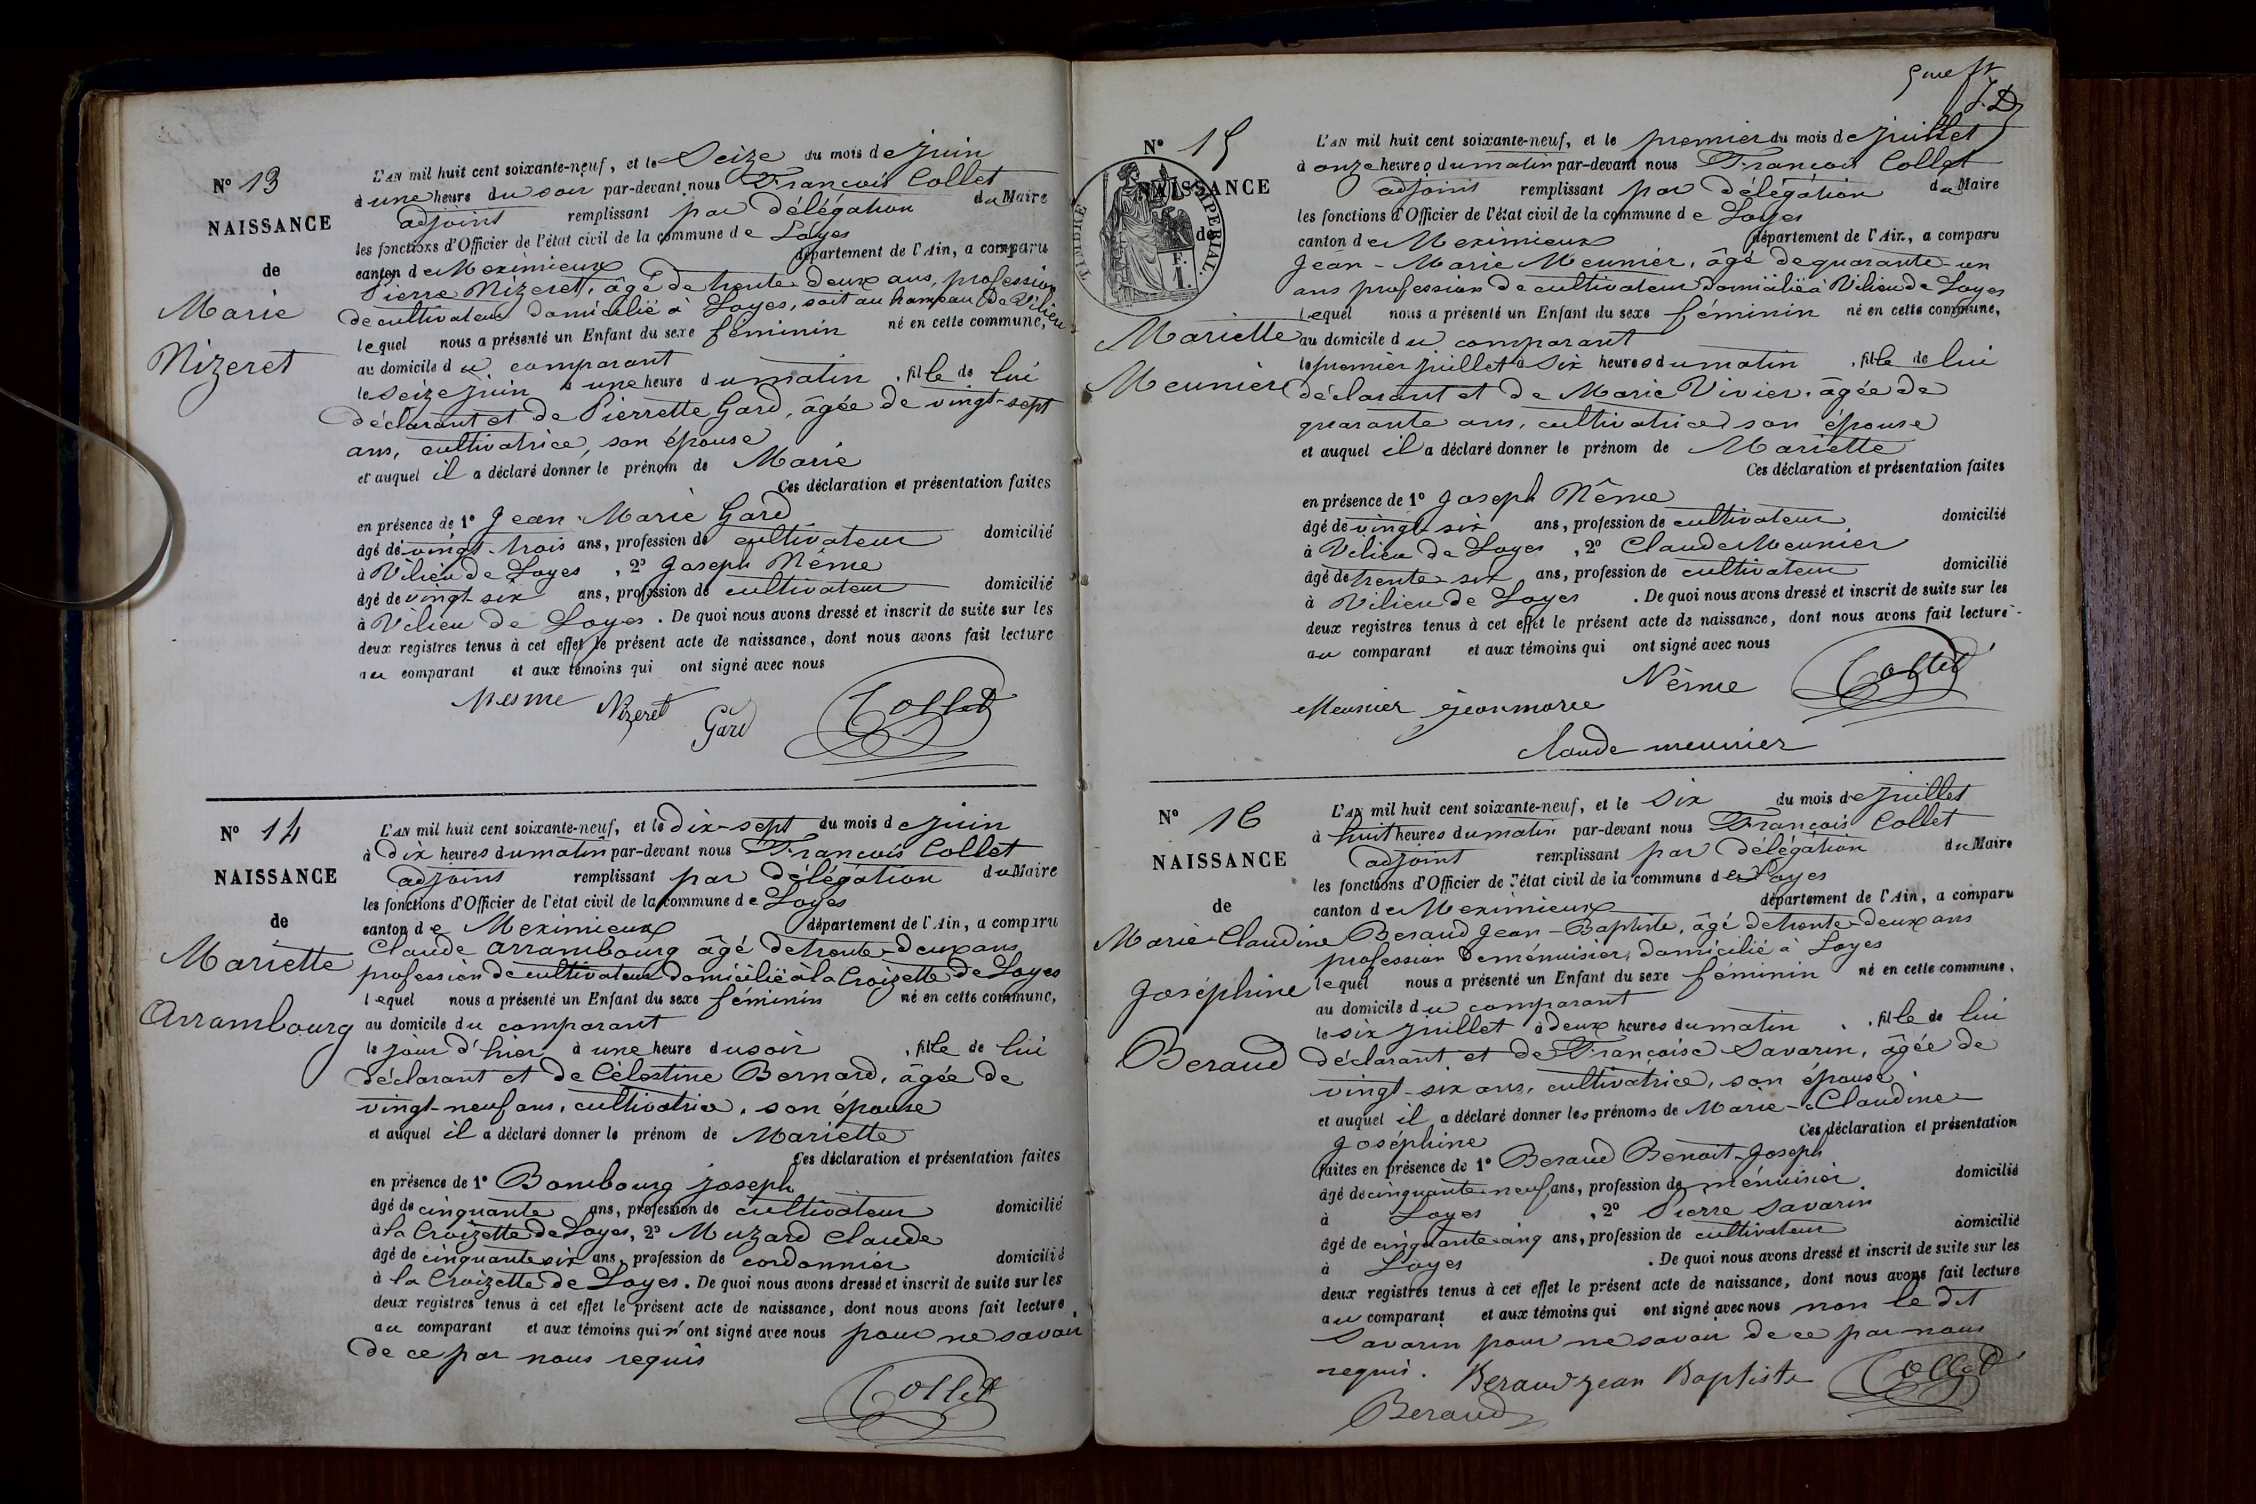 N° 13
NAISSANCE
de
Marie
Nizeret
L'AN mil huit cent soixante-neuf, et le Seize du mois de juin
à une heure du soir par-devant nous François Collet
adjoint remplissant par délégation du Maire
les fonctions d'Officier de l'état civil de la commune de Loyes
canton de Meximieux département de l'Ain, a comparu
Pierre Nizeret, âgé de trente deux ans, profession
de cultivateur domicilié à Loyes, soit au hameau de Vilieu
lequel nous a présenté un Enfant du sexe féminin né en cette commune,
au domicile du comparant
le seize juin à une heure du matin, fille de lui
déclarant et de Pierrette Gard, âgée de vingt-sept
ans, cultivatrice, son épouse
et auquel il a déclaré donner le prénom de Marie
Ces déclaration et présentation faites
en présence de 1° Jean-Marie Gard
âgé de vingt-trois ans, profession de cultivateur domicilié
à Vilieu de Loyes, 2° Joseph Nême
âgé de vingt-six ans, profession de cultivateur domicilié
à Vilieu de Loyes. De quoi nous avons dressé et inscrit de suite sur les
deux registres tenus à cet effet le présent acte de naissance, dont nous avons fait lecture
au comparant et aux témoins qui ont signé avec nous
Nesme Nizeret Gard Collet
N° 14
NAISSANCE
de
Mariette
Arrambourg
L'AN mil huit cent soixante-neuf, et le dix-sept du mois de juin
à dix heures du matin par-devant nous François Collet
adjoint remplissant par délégation du Maire
les fonctions d'Officier de l'état civil de la commune de Loyes
canton de Meximieux département de l'Ain, a comparu
Claude Arrambourg âgé de trente-deux ans
profession de cultivateur domicilié à la Croizette de Loyes
lequel nous a présenté un Enfant du sexe féminin né en cette commune,
au domicile du comparant
le jour d'hier à une heure du soir, fille de lui
déclarant et de Célestine Bernard, âgée de
vingt-neuf ans, cultivatrice, son épouse
et auquel il a déclaré donner le prénom de Mariette
Ces déclaration et présentation faites
en présence de 1° Bombourg Joseph
âgé de cinquante ans, profession de cultivateur domicilié
à la Croizette de Loyes, 2° Muzard Claude
âgé de cinquante six ans, profession de cordonnier domicilié
à la Croizette de Loyes. De quoi nous avons dressé et inscrit de suite sur les
deux registres tenus à cet effet le présent acte de naissance, dont nous avons fait lecture,
au comparant et aux témoins qui n'ont signé avec nous pour ne savoir
de ce par nous requis
Collet
N° 15
NAISSANCE
de
TIMBRE IMPERIAL.
1 F.
Mariette
Meunier
L'AN mil huit cent soixante-neuf, et le premier du mois de juillet
à onze heures du matin par-devant nous François Collet
adjoint remplissant par délégation du Maire
les fonctions d'Officier de l'état civil de la commune de Loyes
canton de Meximieux département de l'Ain, a comparu
Jean-Marie Meunier, âgé de quarante-un
ans profession de cultivateur domicilié à Vilieu de Loyes
Lequel nous a présenté un Enfant du sexe féminin né en cette commune,
au domicile du comparant
le premier juillet à six heures du matin, fille de lui
déclarant et de Marie Vivier, âgée de
quarante ans, cultivatrice son épouse
et auquel il a déclaré donner le prénom de Mariette
Ces déclaration et présentation faites
en présence de 1° Joseph Nême
âgé de vingt-six ans, profession de cultivateur domicilié
à Vilieu de Loyes, 2° Claude Meunier
âgé de trente-six ans, profession de cultivateur domicilié
à Vilieu de Loyes. De quoi nous avons dressé et inscrit de suite sur les
deux registres tenus à cet effet le présent acte de naissance, dont nous avons fait lecture
au comparant et aux témoins qui ont signé avec nous
Nême Collet
Meunier jeanmarie
claude meunier
N° 16
NAISSANCE
de
Marie-Claudine
Joséphine
Beraud
L'AN mil huit cent soixante-neuf, et le six du mois de juillet
à huit heures du matin par-devant nous François Collet
adjoint remplissant par délégation du Maire
les fonctions d'Officier de l'état civil de la commune de Loyes
canton de Meximieux département de l'Ain, a comparu
Beraud Jean-Baptiste, âgé de trente-deux ans
profession de ménuisier, domicilié à Loyes
lequel nous a présenté un Enfant du sexe féminin né en cette commune,
au domicile du comparant
le six juillet à deux heures du matin, fille de lui
déclarant et de Françoise Savarin, âgée de
vingt-six ans, cultivatrice, son épouse
et auquel il a déclaré donner les prénoms de Marie-Claudine
Joséphine Ces déclaration et présentation
faites en présence de 1° Beraud Benoit-Joseph
âgé de cinquante-neuf ans, profession de ménuisier domicilié
à Loyes, 2° Pierre Savarin
âgé de cinquante-cinq ans, profession de cultivateur domicilié
à Loyes. De quoi nous avons dressé et inscrit de suite sur les
deux registres tenus à cet effet le présent acte de naissance, dont nous avons fait lecture
au comparant et aux témoins qui ont signé avec nous non le dit
Savarin pour ne savoir de ce par nous
requis. Beraud jean Baptiste Collet
Beraud